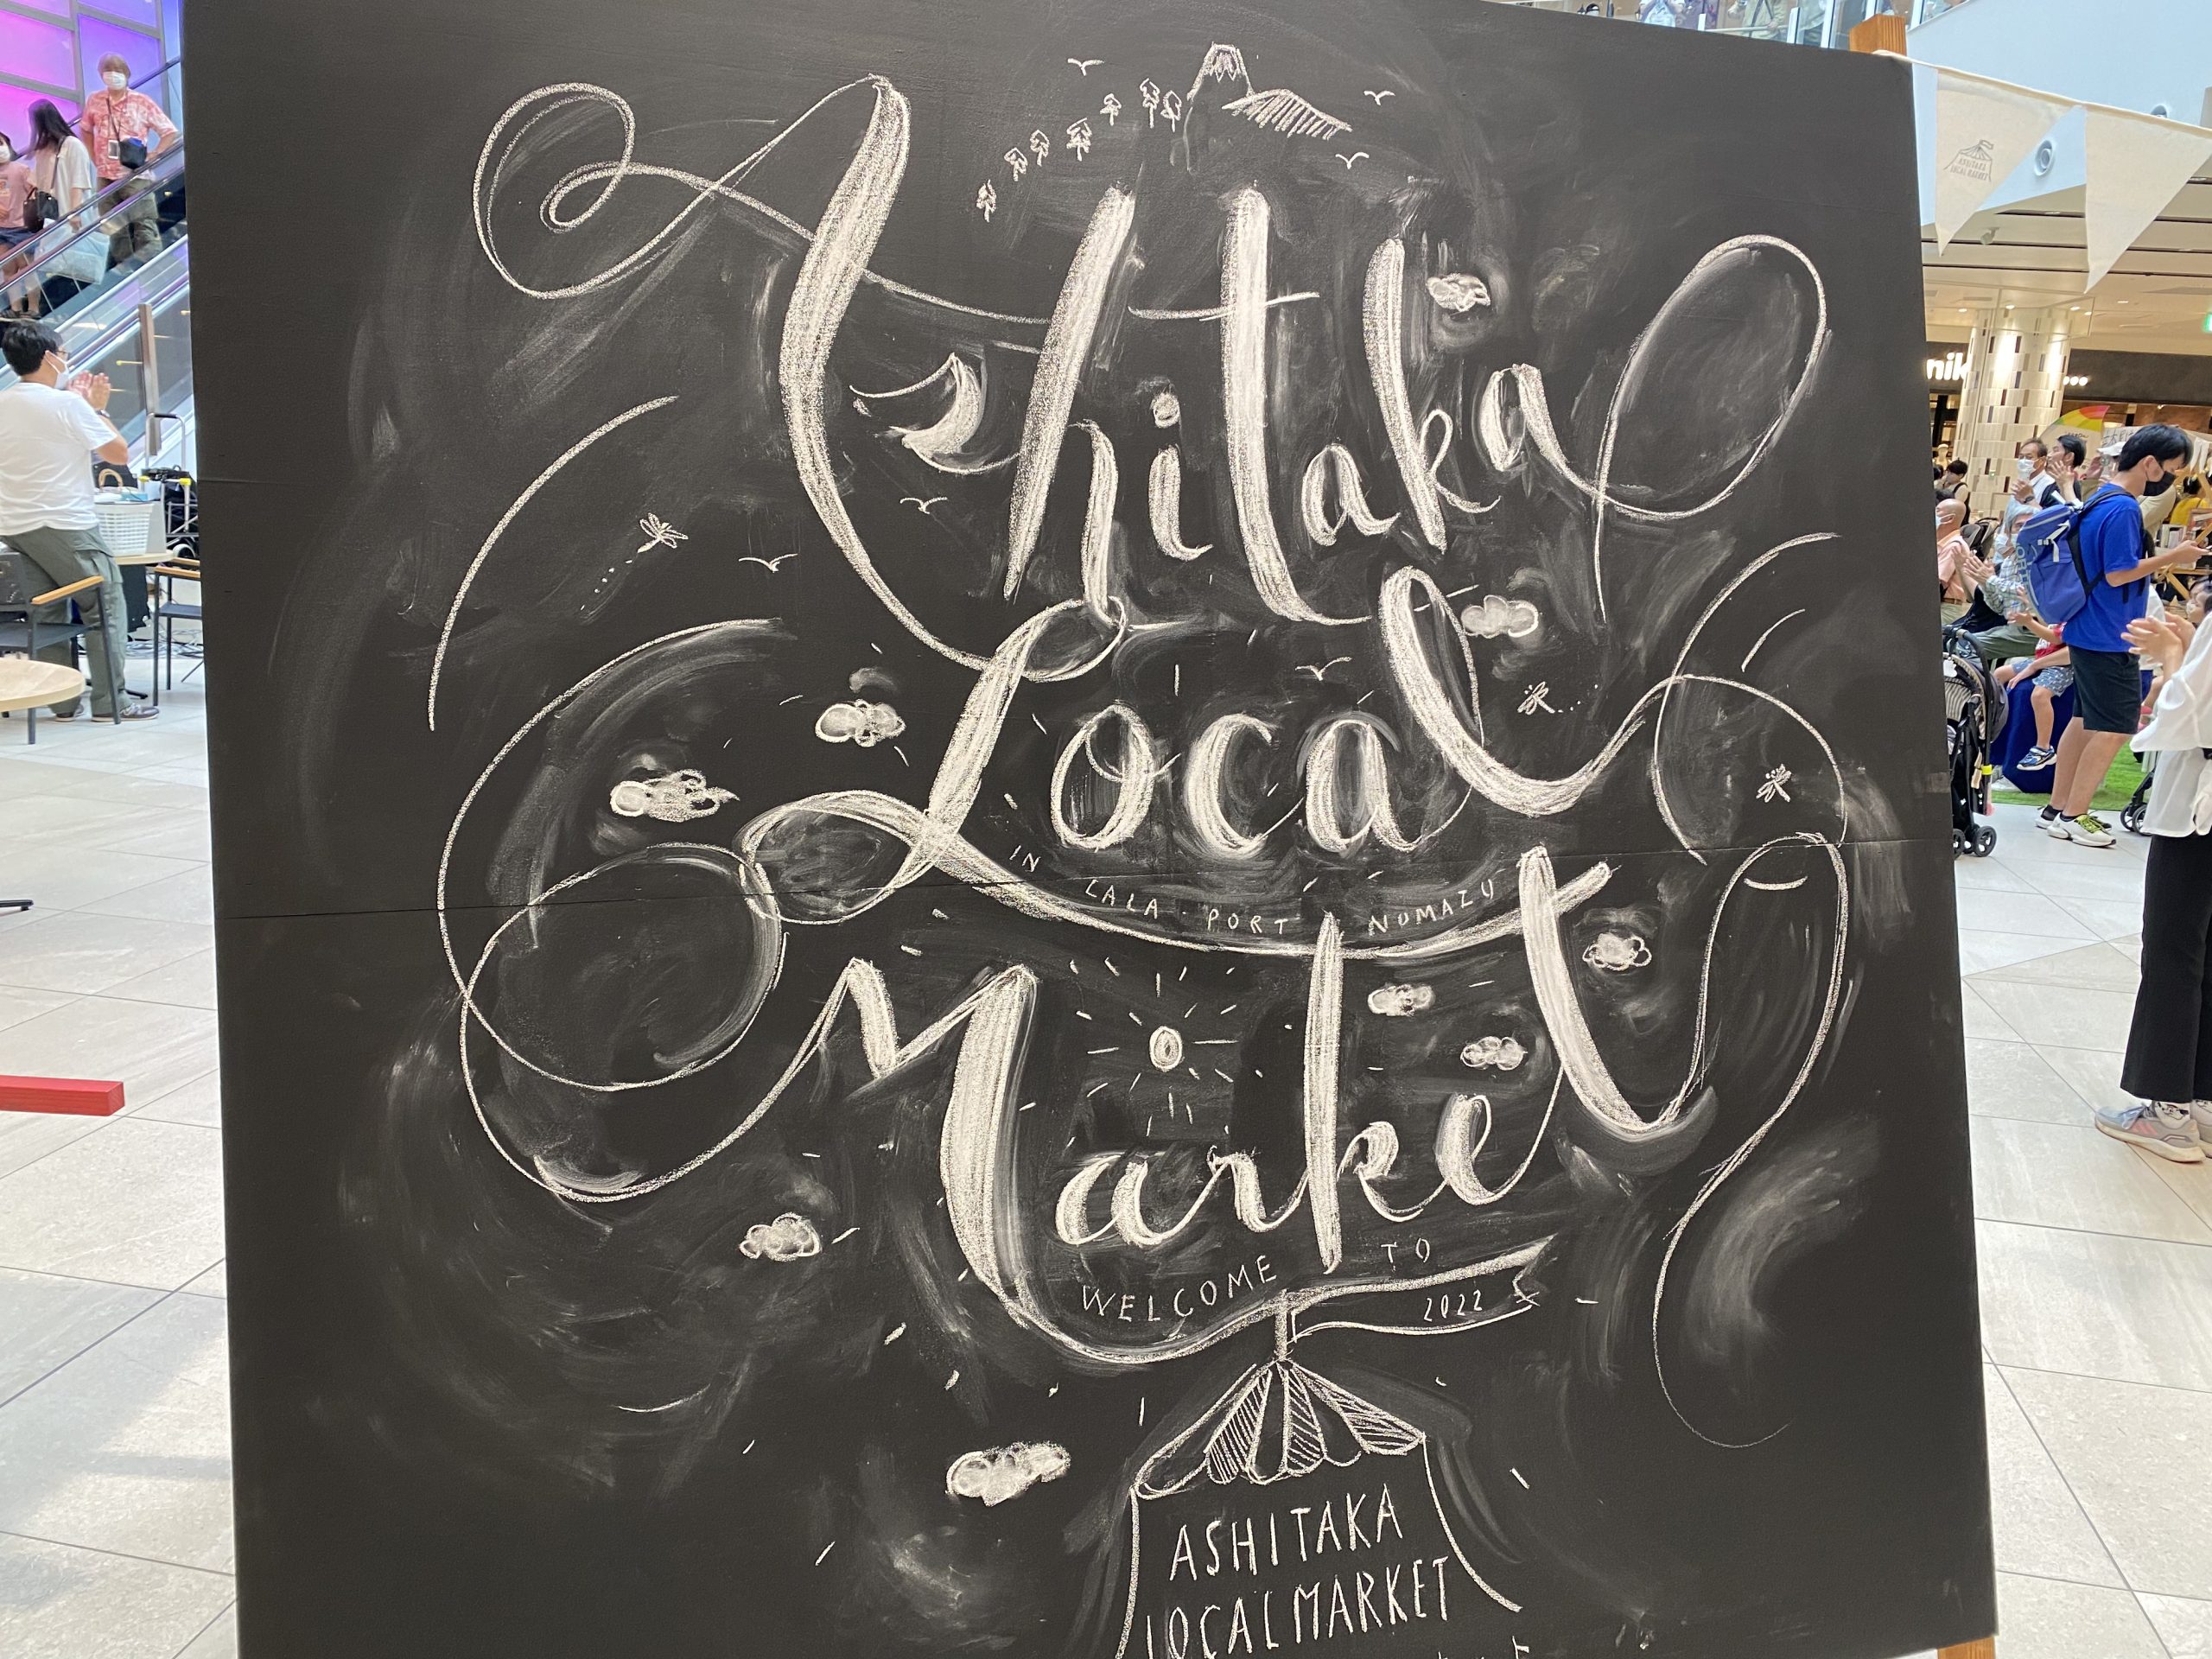 Ashitaka
Local
IN LALA-PORT NUMAZU
Market
WELCOME TO
2022
ASHITAKA
LOCAL MARKET
ASHITAKA
LOCAL MARKET